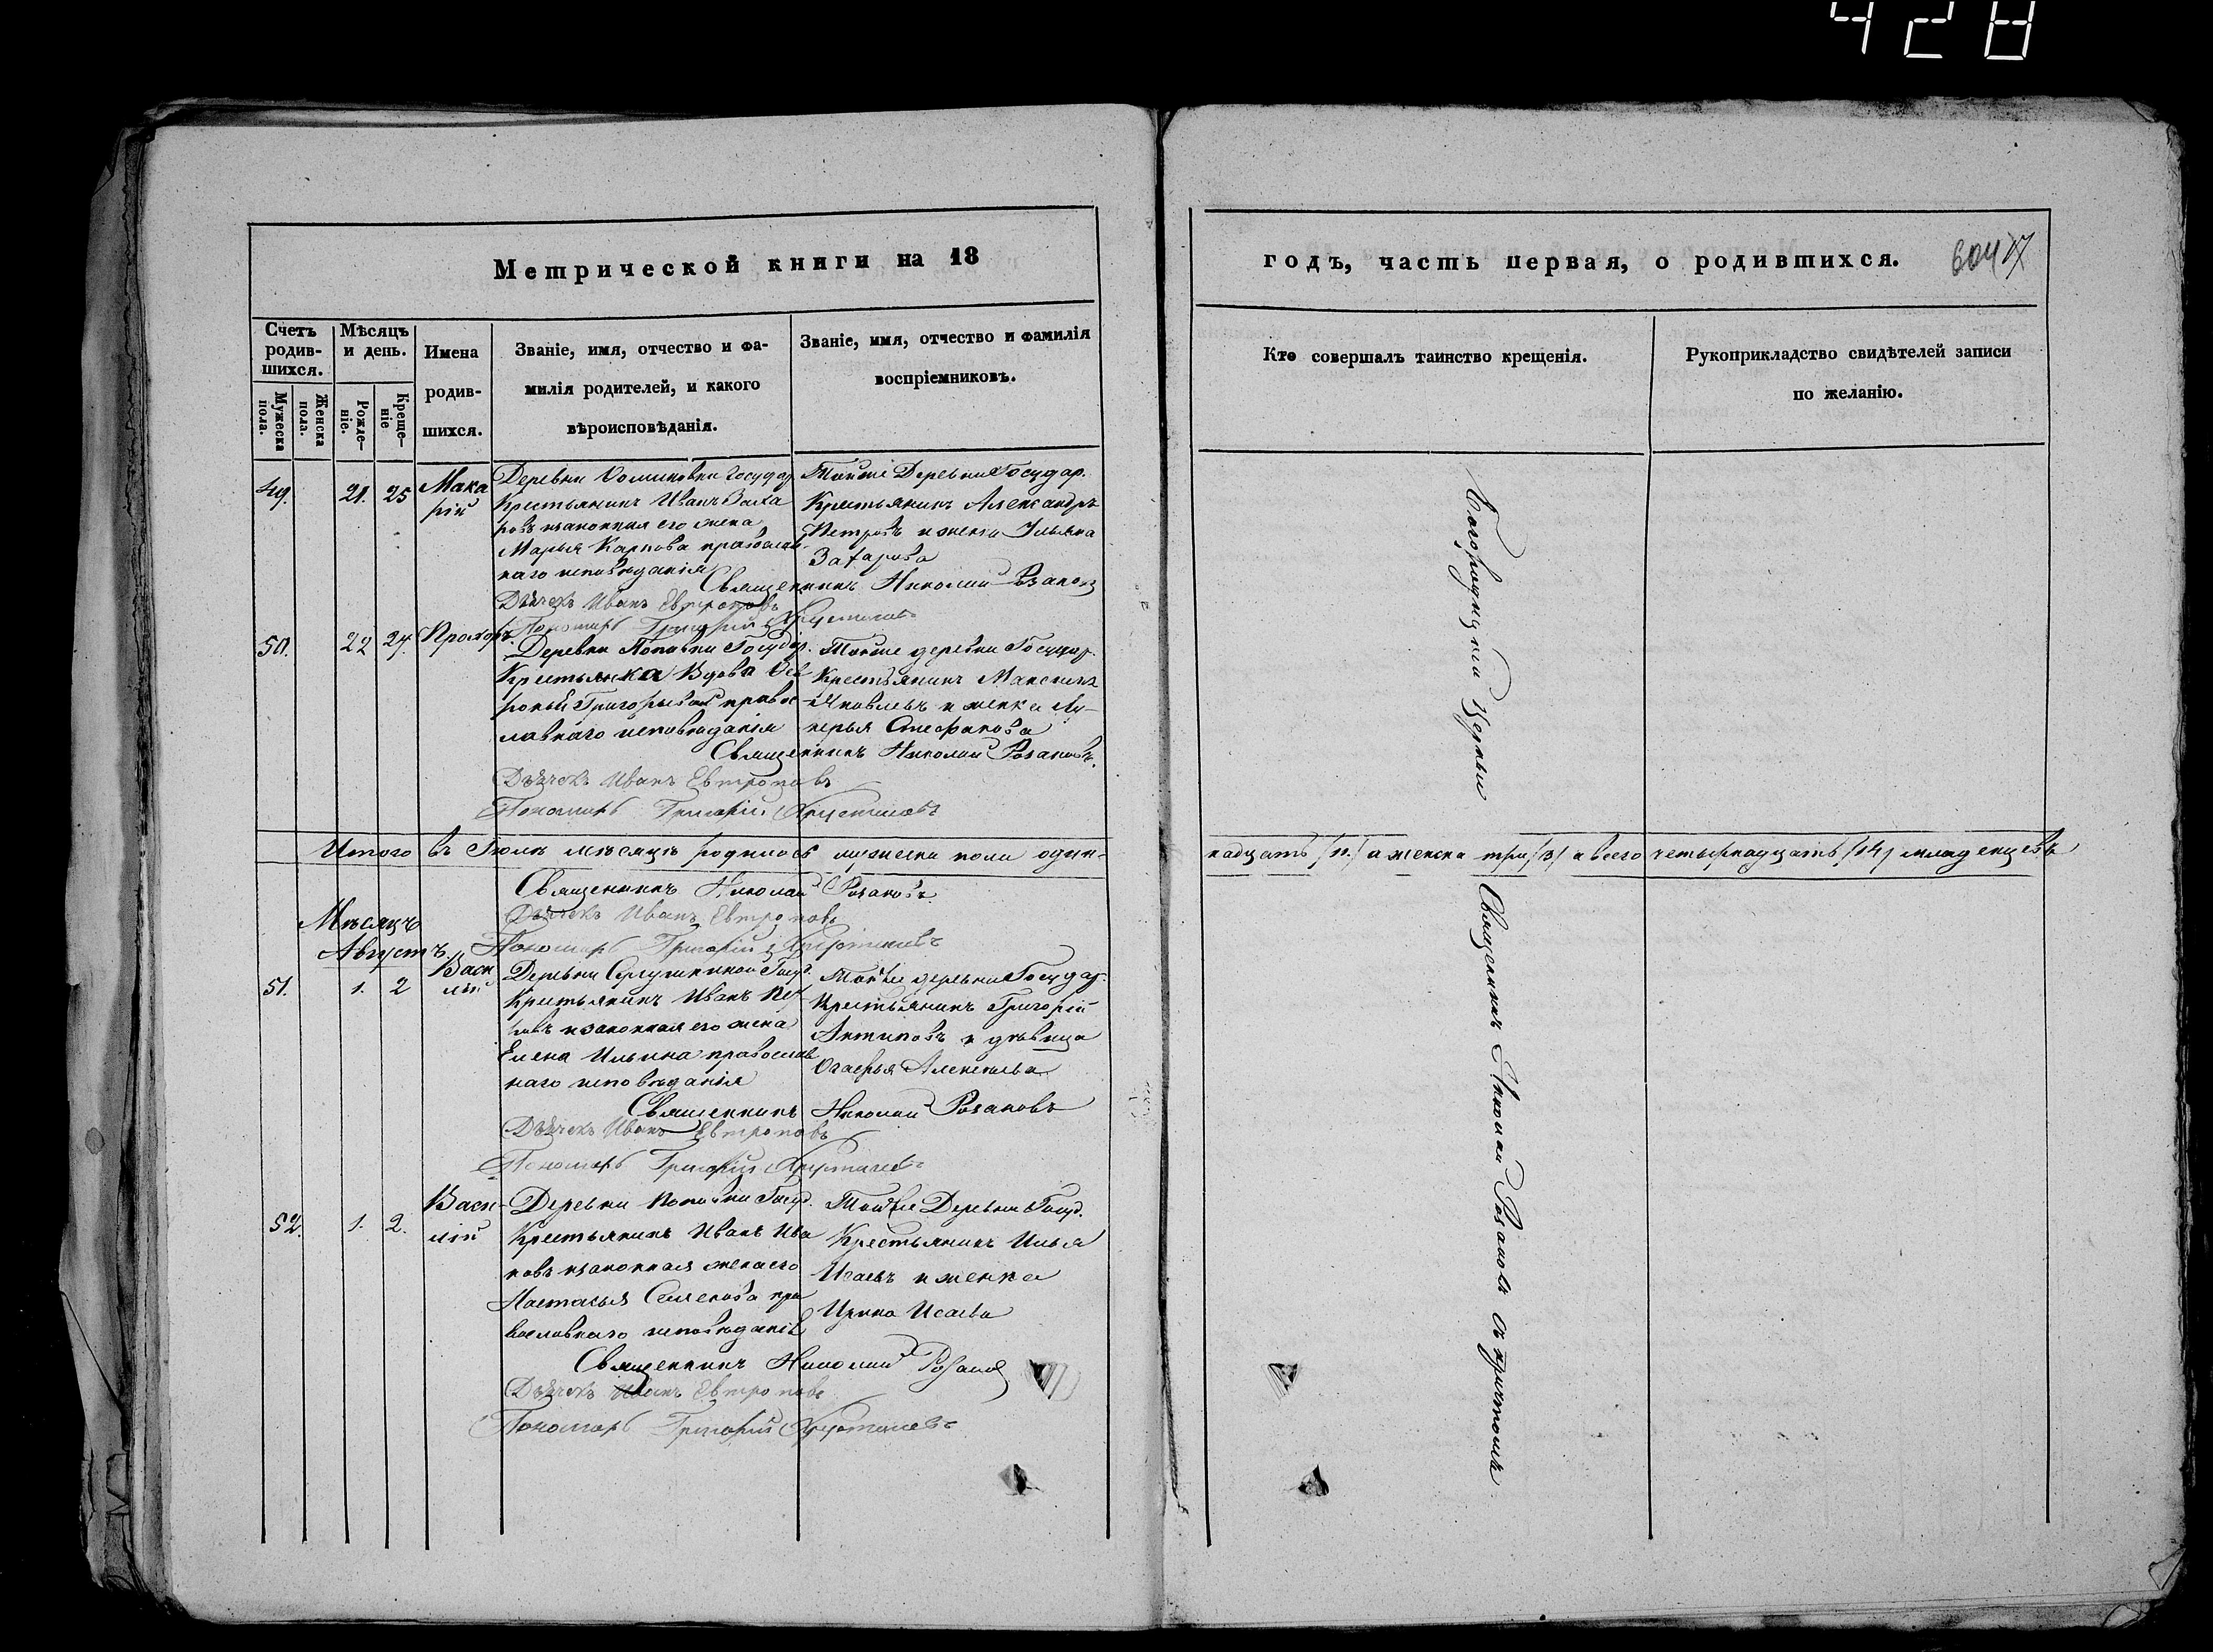 428
Метрической книги на 18
годъ, часть первая, о родившихся.
604
Счетъ родив-шихся.
Мужеска пола.
Женска пола.
Мѣсяцъ и день.
Рожде-ніе.
Креще-ніе
Имена
родив-
шихся.
Званіе, имя, отчество и фа-
милія родителей, и какого
вѣроисповѣданія.
Званіе, имя, отчество и фамилія
воспріемниковъ.
Кто совершалъ таинство крещенія.
Рукоприкладство свидѣтелей записи
по желанію.
49. 21. 25 Мака
рій
Деревни Государ
Крестьянинъ Иванъ Заха
ровъ и законная его жена
Марья Карпова православ-
наго исповѣданія
Тойже Деревни Государ.
Крестьянинъ Александръ
Петровъ и женка Ульяна
Захарова
Священникъ Николай Розановъ
Дьячекъ Иванъ Евтроповъ
Пономарь Григорій Хрусталевъ
50. 22 27. Прохоръ
Деревни Поповки Государ.
Крестьянка Вдова Фев
роньи Григорьева правос
лавнаго исповѣданія
Тойже деревни Государ.
Крестьянинъ Максимъ
Яковлевъ и женка Лу-
керья Стефанова
Священникъ Николай Розановъ.
Дьячекъ Иванъ Евтроповъ
Пономарь Григорій Хрусталевъ
Итого въ Іюлѣ мѣсяцѣ родилось мужеска пола один-
надцать /11./ а женска три /3/ а всего четырнадцать /14/ младенцевъ
Священникъ Николай Розановъ
Дьячекъ Иванъ Евтроповъ
Пономарь Григорій Хрусталевъ
Мѣсяцъ
Августъ.
51. 1. 2 Васи
лій
Деревни Госуд.
Крестьянинъ Иванъ Пет
ровъ и законная его жена
Елена Ильина православ
наго исповѣданія
Тойже деревни Государ.
Крестьянинъ Григорій
Антиповъ и дѣвица
Алексѣева
Священникъ Николай Розановъ
Дьячекъ Иванъ Евтроповъ
Пономарь Григорій Хрусталевъ
52. 1. 2. Васи-
лій
Деревни Поповки Госуд.
Крестьянинъ Иванъ Ива
новъ и законная жена его
Настасья Семенова пра
вославнаго исповѣданія
Тойже Деревни Госуд.
Крестьянинъ Илья
Исаевъ и женка
Ирина Исаева
Священникъ Николай Розановъ
Дьячекъ Иванъ Евтроповъ
Пономарь Григорій Хрусталевъ
Богородицкой Церкви
Священникъ Николай Розановъ съ причтомъ